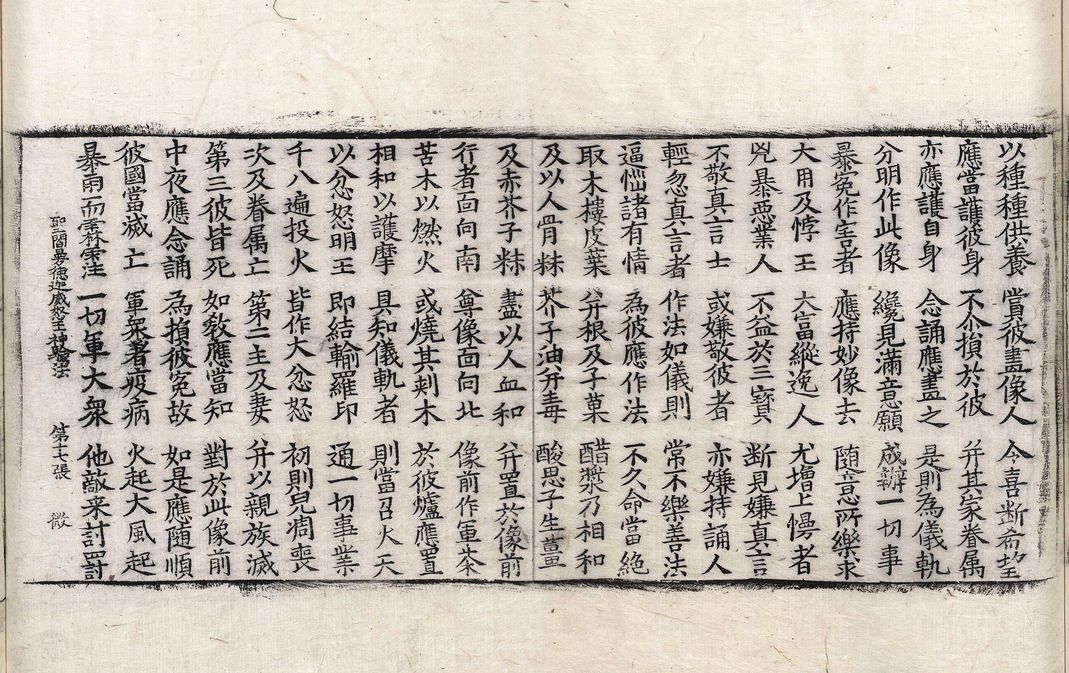 以種種供養 當彼畫像人 今喜斷希望
應當護彼身 不介損於彼 并其家眷属
亦應護自身 念誦應畫之 是則為儀軌
分明作此像 纔見滿意願 成辦一切事
暴寃作害者 應持妙像去 随意所樂求
大用及悖王 大富縱逸人 尤增上慢者
兇暴惡業人 不益於三寶 斷見嫌真言
不敬真言士 或嫌敬彼者 亦嫌持誦人
輕忽真言者 作法如儀則 常不樂善法
逼惱諸有情 為彼應作法 不久命當絕
取木樓皮葉 并根及子菓 醋漿乃相和
及以人骨粖 芥子油并毒 酸思子生薑
及赤芥子粖 盡以人血和 并置於像前
行者面向南 尊像面向北 像前作軍荼
苦木以燃火 或燒其刺木 於彼爐應置
相和以護摩 具知儀軌者 則當召火天
以忿怒明王 即結輸羅印 通一切事業
千八遍投火 皆作大忿怒 初則兒凋喪
次及眷属亡 第二主及妻 并以親族滅
第三彼皆死 如教應當知 對於此像前
中夜應念誦 為損彼寃故 如是應随順
彼國當滅亡 軍眾者疫病 火起大風起
暴雨而霖注 一切軍大眾 他敵来討罸
聖閻曼德迦威怒王神驗法 第十七張 微